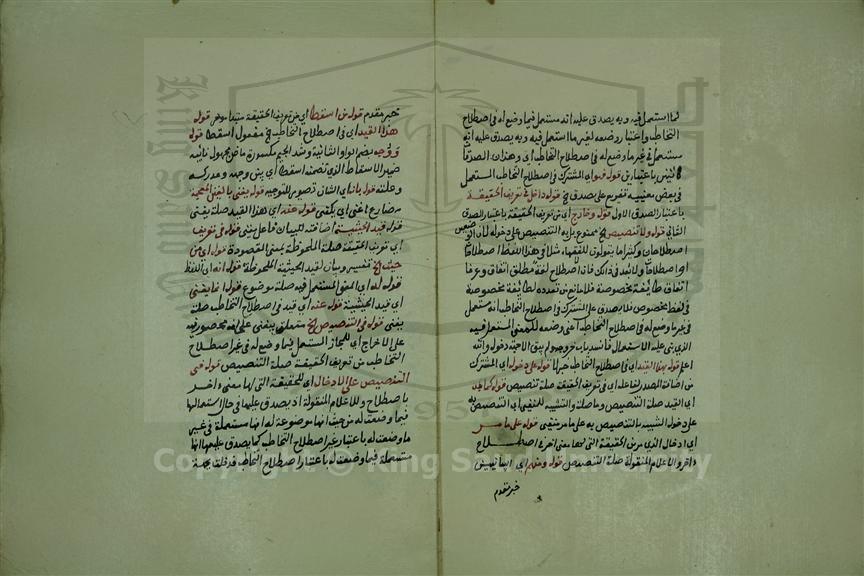 لما استعمل فيه وبه يصدق عليه انه مستعمل فيما وضع له في اصطلاح
التخاطب واعتبار وضعه لغير ما استعمل فيه وبه يصدق عليه انه
مستعمل في غير ما وضع له في اصطلاح التخاطب اي وهذان الصدقان
ليس باعتبار قوله فهو اي المشترك في اصطلاح التخاطب المستعمل
في بعض معنييه قوله داخل في تعريف الحقيقة
باعتبار الصدق الاول قوله وخارج اي من تعريف الحقيقة باعتبار الصدق
الثاني قوله ولا تنصيص الخ ممنوع بل به التنصيص على دخوله لان
اصطلاحان وكثيرا ما يقولون للفقهاء مثلا في هذا اللفظ اصطلاحان
او اصطلاحا ولا بعد في ذلك فان اصطلاح لغة مطلق اتفاق وعرفا
اتفاق طائفة مخصوصة فلا مانع من تعدده لطائفة مخصوصة
في لفظ مخصوص فلا يصدق على المشترك في اصطلاح التخاطب انه مستعمل
في غير ما وضع له في اصطلاح التخاطب اعني وضعه للمعنى المستعمل فيه
الذي بنى عليه الاستعمال فانسد باب خروجه ولم يبق الا جهة دخوله والله
اعلم قوله بهذا القيد اي في اصطلاح التخاطب قوله على دخوله اي المشترك
من اضافة المصدر لفاعله اي في تعريف الحقيقة صلة تنصيص قوله كما به
اي القيد صلة التنصيص وما صلة والتشبيه للنفي اي التنصيص به
على دخوله الشبيه بالتنصيص به على ما مر منفي قوله على ما مر
اي ادخال الذي مر من الحقيقة التي لها معنى اخر في اصطلاح
داخر والاعلام المنقولة صلة التنصيص قوله ومنهم اي البيانيين
خبر مقدم
خبر مقدم قوله من اسقط اي من تعريف الحقيقة مبتدا موخر قوله
هذا القيد اي في اصطلاح التخاطب في مفعول اسقط قوله
ووُجِّه بضم الواو الثانية وشد الجيم مكسورة ماض مجهول نائبه
ضمير الاسقاط الذي تضمنه اسقط اي بين وجهه ومدركه
وعلته قوله بان اي الشان تصوير للتوجيه قوله يغني بالغين المعجمة
مضارع اغنى اي يكفي قوله عنه اي هذا القيد صلة يغني
قوله قيد الحيثية اضافته للبيان فاعل يغني قوله في تعريف
اي تعريف الحقيقة صلة الملحوظة بمعنى المقصودة قوله اي من
حيث الخ تفسير وبيان لقيد الحيثية الملحوظة قوله انه اي اللفظ
قوله له اي المعنى المستعمل فيه صلة موضوع قوله فا يغني
اي قيد الحيثية قوله عنه اي قيد في اصطلاح التخاطب صلة
يغني قوله في التنصيص الخ متعلق بيغني على انه محصور فيه
على الاخراج اي للمجاز المستعمل فيما وضع له في غير اصطلاح
التخاطب من تعريف الحقيقة صلة التنصيص قوله في
التنصيص على الادخال اي للحقيقة التي لها معنى داخر
باصطلاح وللاعلام المنقولة اذ يصدق عليها في حال استعمالها
فيما وضعت له من حيث انها موضوعة له انها مستعملة في غير
ما وضعت له باعتبار غير اصطلاح التخاطب كما يصدق عليها انها
مستعملة فيما وضعت له باعتبار اصطلاح التخاطب فدخلت بجهة
King Saud University
Copyright © King Saud University
1957